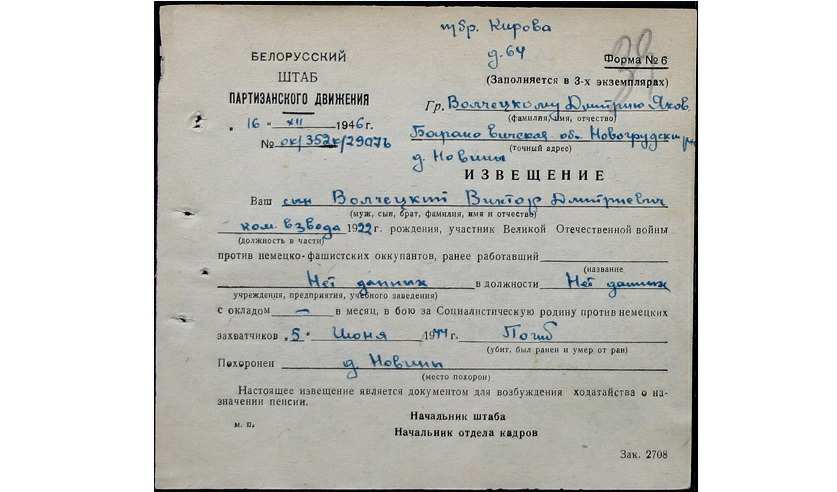 пбр. Кирова
д-64
39
БЕЛОРУССКИЙ
ШТАБ
ПАРТИЗАНСКОГО ДВИЖЕНИЯ
Форма № 6
(Заполняется в 3-х экземплярах)
„16" XII 1946 г.
№ ок/352к/2907б
Гр. Волчецкому Дмитрию Яков.
(фамилия, имя, отчество)
Барановичская об. Новогрудский
(точный адрес)
д. Новины
ИЗВЕЩЕНИЕ
Ваш сын Волчецкий Виктор Дмитриевич
(муж, сын, брат, фамилия, имя и отчество)
ком. взвода 1922 г. рождения, участник Великой Отечественной войны
(должность в части)
против немецко-фашистских оккупантов, ранее работавший
(название
Нет данных в должности Нет данных
учреждения, предприятия, учебного заведения)
с окладом — в месяц, в бою за Социалистическую родину против немецких
захватчиков „5" Июня 1944 г. Погиб
(убит, был ранен и умер от ран)
Похоронен д. Новины
(место похорон)
Настоящее извещение является документом для возбуждения ходатайства о на-
значении пенсии.
Начальник штаба
м. п.
Начальник отдела кадров
Зак. 2708